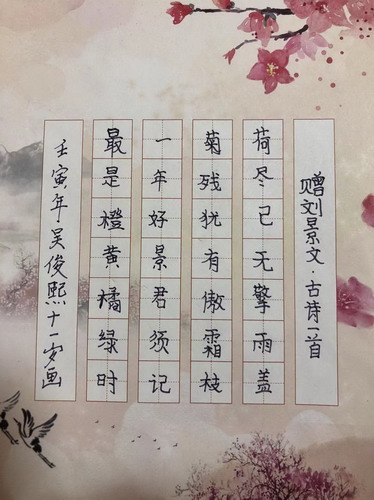 赠刘景文·古诗一首
荷尽已无擎雨盖
菊残犹有傲霜枝
一年好景君须记
最是橙黄橘绿时
壬寅年吴俊熙十一岁画